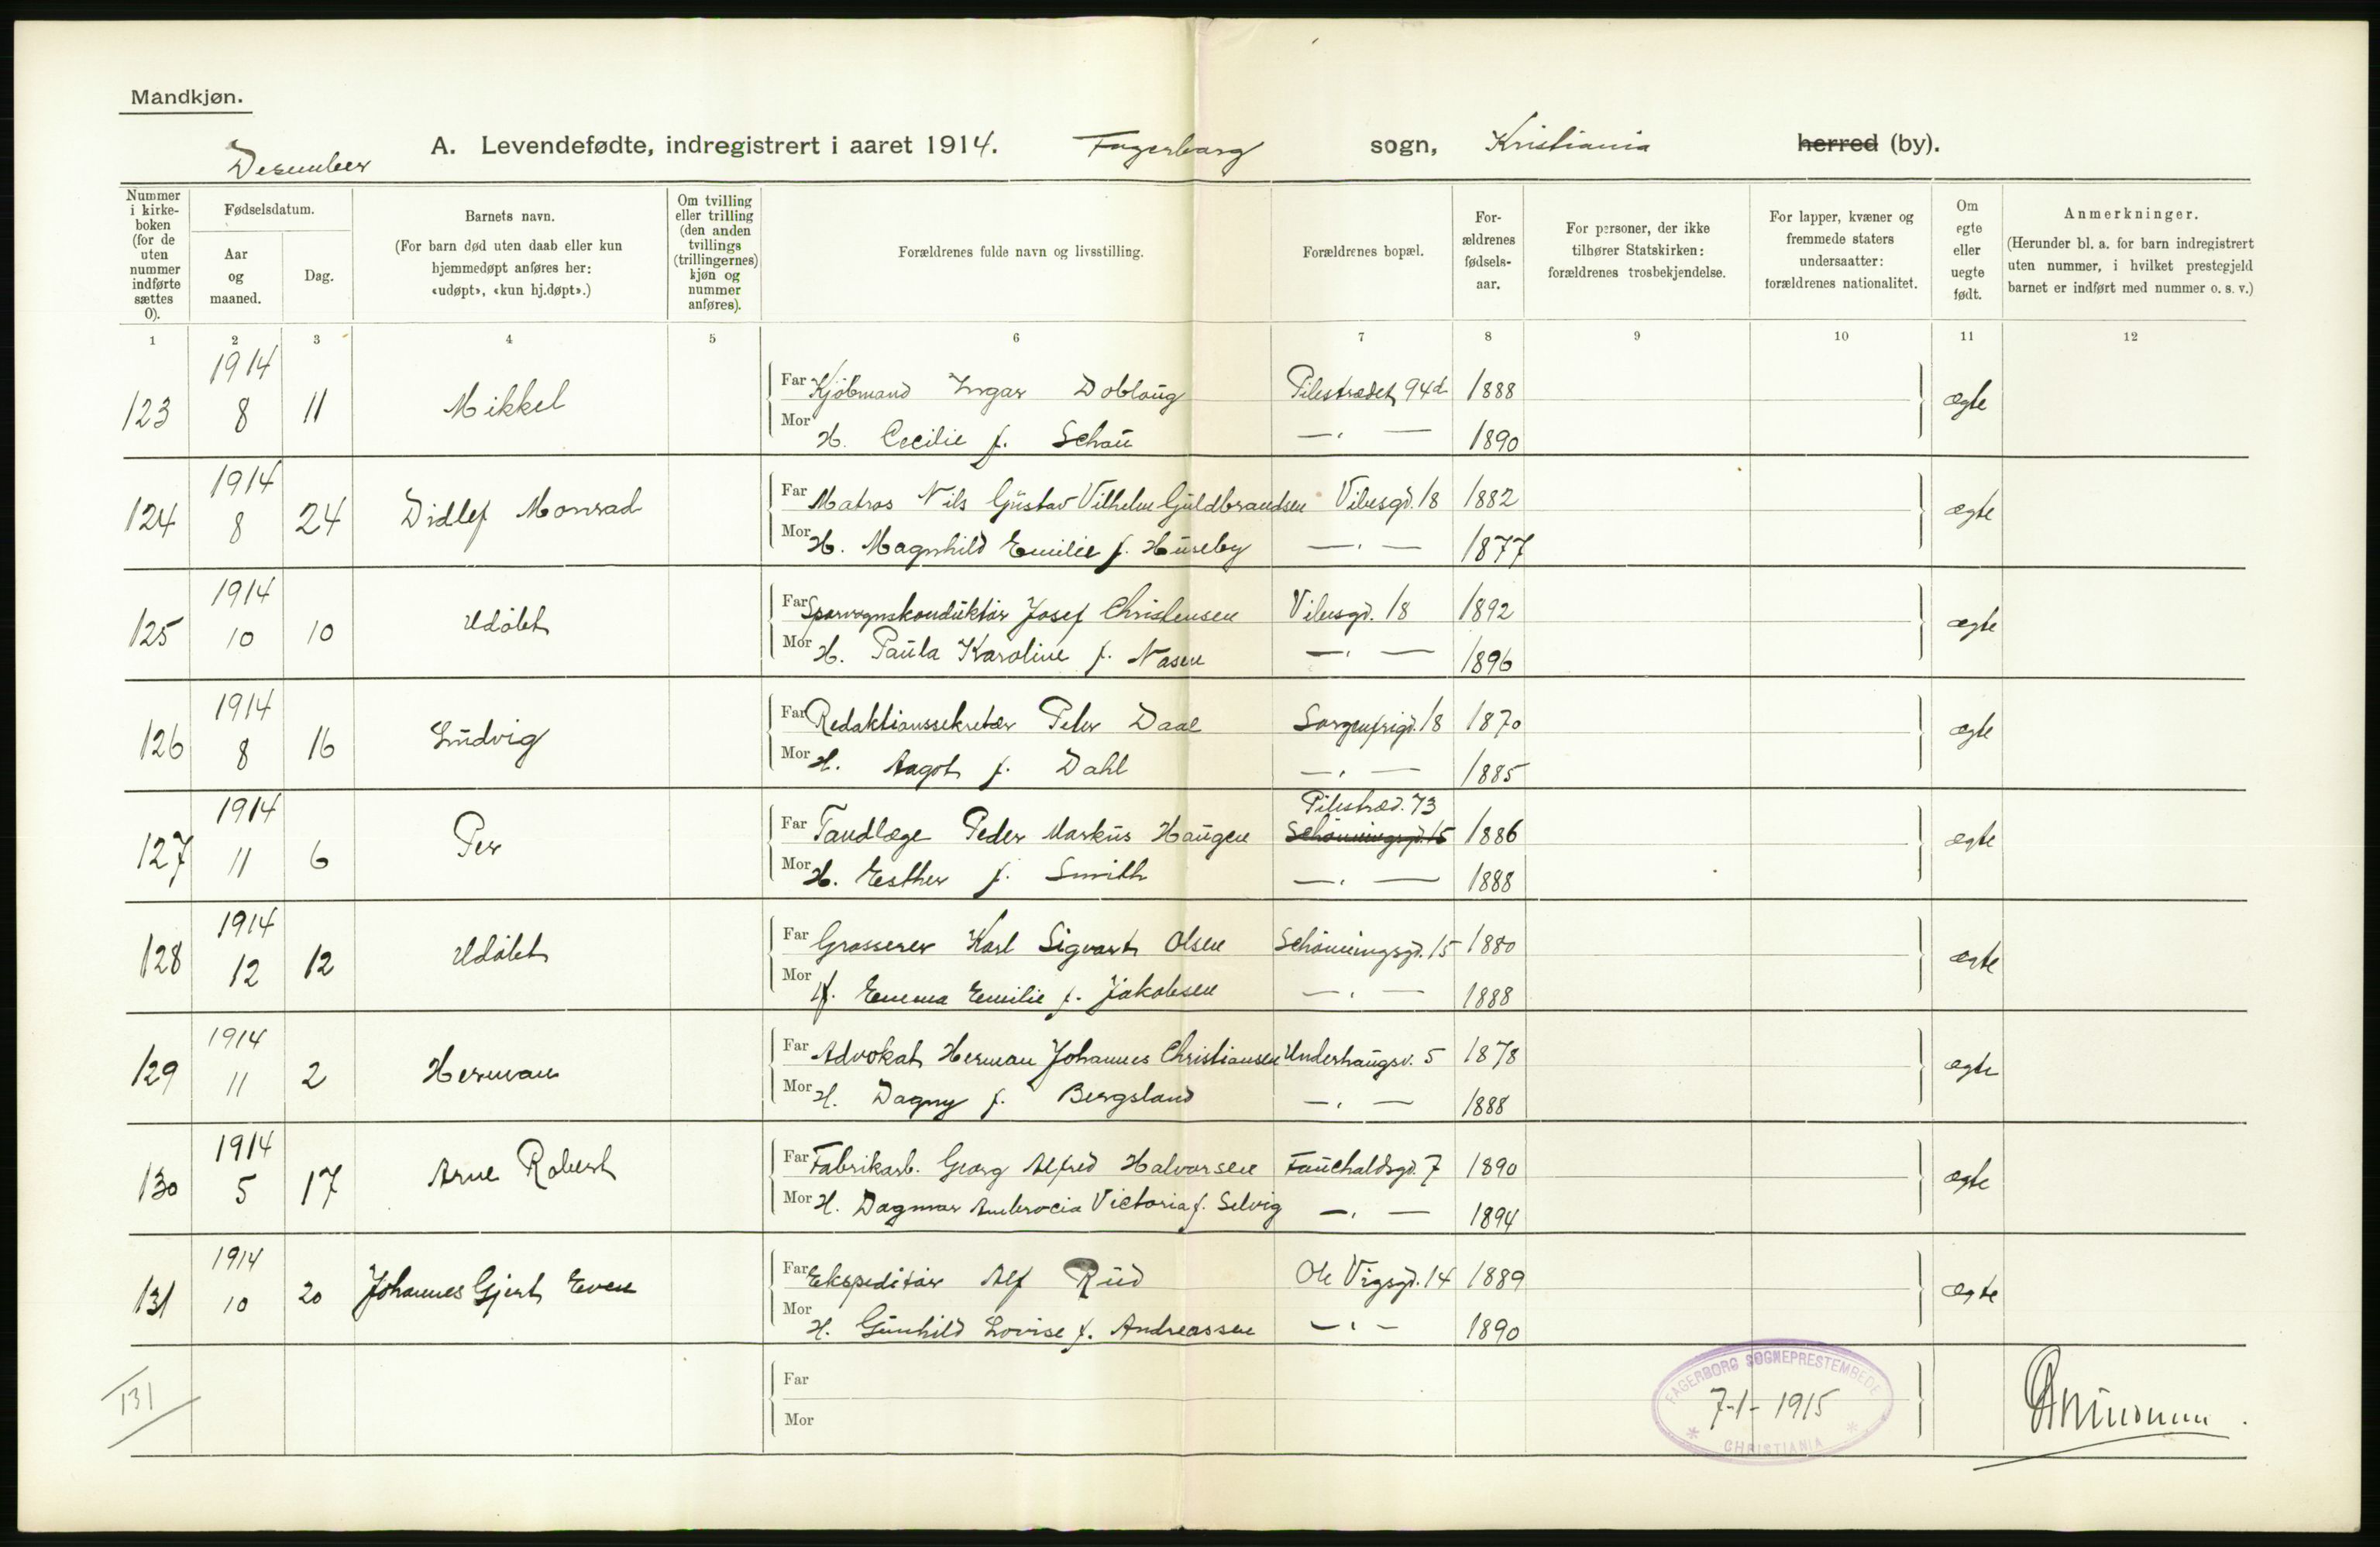 Mandkjøn.
Desember
A. Levendefødte, indregistrert i aaret 1914. Fagerborg sogn, Kristiania herred (by).
Nummer i kirke-boken (for de uten nummer indførte sættes 0).
Fødselsdatum.
Aar og maaned.
Dag.
Barnets navn.
(For barn død uten daab eller kun hjemmedøpt anføres her: «udøpt», «kun hj.døpt».)
Om tvilling eller trilling (den anden tvillings (trillingernes) kjøn og nummer anføres).
Forældrenes fulde navn og livsstilling.
Forældrenes bopæl.
For-ældrenes fødsels-aar.
For personer, der ikke tilhører Statskirken: forældrenes trosbekjendelse.
For lapper, kvæner og fremmede staters undersaatter: forældrenes nationalitet.
Om egte eller uegte født.
Anmerkninger.
(Herunder bl. a. for barn indregistrert uten nummer, i hvilket prestegjeld barnet er indført med nummer o. s. v.)
1 2 3 4 5 6 7 8 9 10 11 12
123 1914 8 11 Mikkel Far Kjøbmand Ingar Dobloug Pilestrædet 94d 1888 ægte
Mor H. Cecilie f. Schou —„— 1890
124 1914 8 24 Didlef Monrad Far Matros Nils Gustav Vilhelm Guldbrandsen Vibesgd. 18 1882 ægte
Mor H. Magnhild Emilie f. Huseby —„— 1877
125 1914 10 10 Udøbt Far Sporvognskonduktør Josef Christensen Vibesgd. 18 1892 ægte
Mor H. Paula Karoline f. Nasen —„— 1896
126 1914 8 16 Ludvig Far Redaktionssekretær Peter Daae Sorgenfrigd. 18 1870 ægte
Mor H. Aagot f. Dahl —„— 1885
Pilestræd. 73
127 1914 11 6 Per Far Tandlæge Peder Markus Haugen Schønningsgd. 15 1886 ægte
Mor H. Esther f. Smith —„— 1888
128 1914 12 12 Udøbt Far Grosserer Karl Sigvart Olsen Schønningsgd. 15 1880 ægte
Mor H. Emma Emilie f. Jakobsen —„— 1888
129 1914 11 2 Herman Far Advokat Herman Johannes Christiansen Underhaugsv. 5 1878 ægte
Mor H. Dagny f. Bergsland —„— 1888
130 1914 5 17 Arne Robert Far Fabrikarb. Georg Alfred Halvorsen Fauchaldsgd. 7 1890 ægte
Mor H. Dagmar Ambrocia Victoria f. Selvig —„— 1894
131 1914 10 20 Johannes Gjert Even Far Ekspeditør Alf Ruud Ole Vigsgd. 14 1889 ægte
Mor H. Gunhild Lovise f. Andreassen —„— 1890
131
Far
Mor
FAGERBORG SOGNEPRESTEMBEDE
7-1-1915
CHRISTIANIA